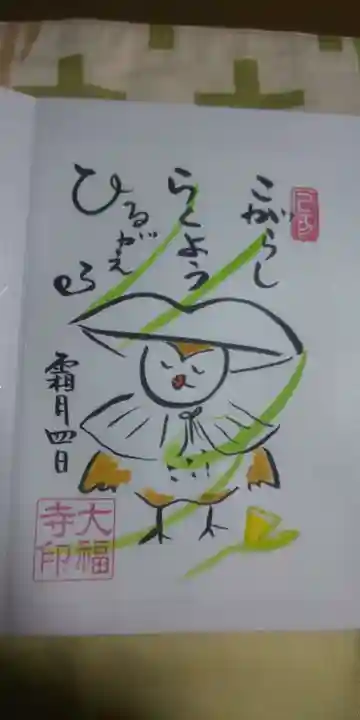 こがらし
らくよう
ひるがえる
霜月四日
大福
寺印